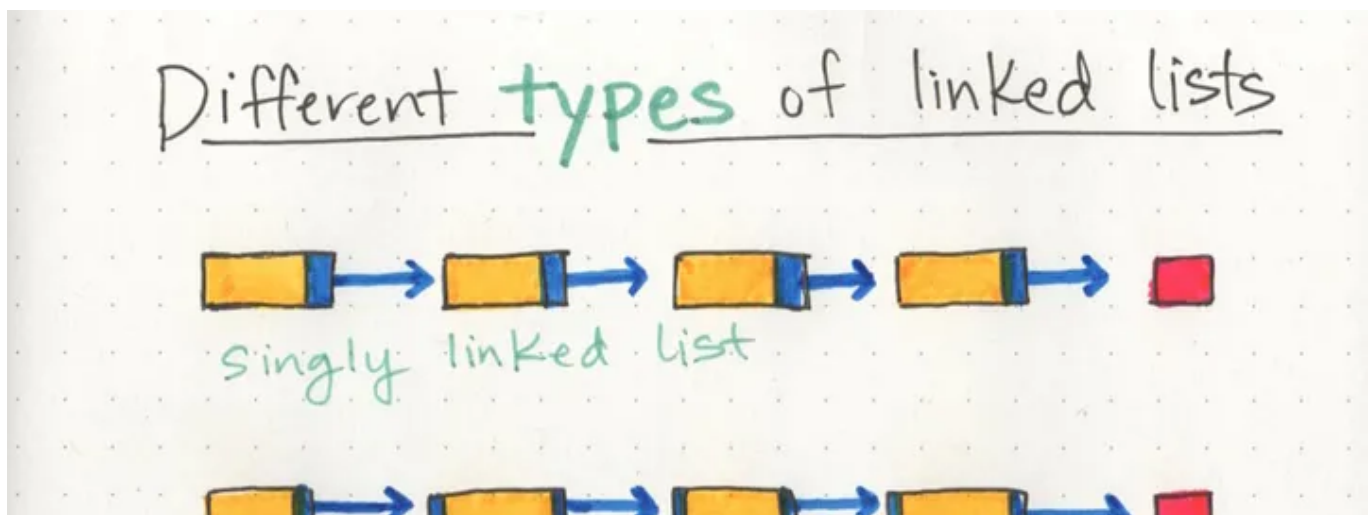 Different types of linked lists
singly linked list